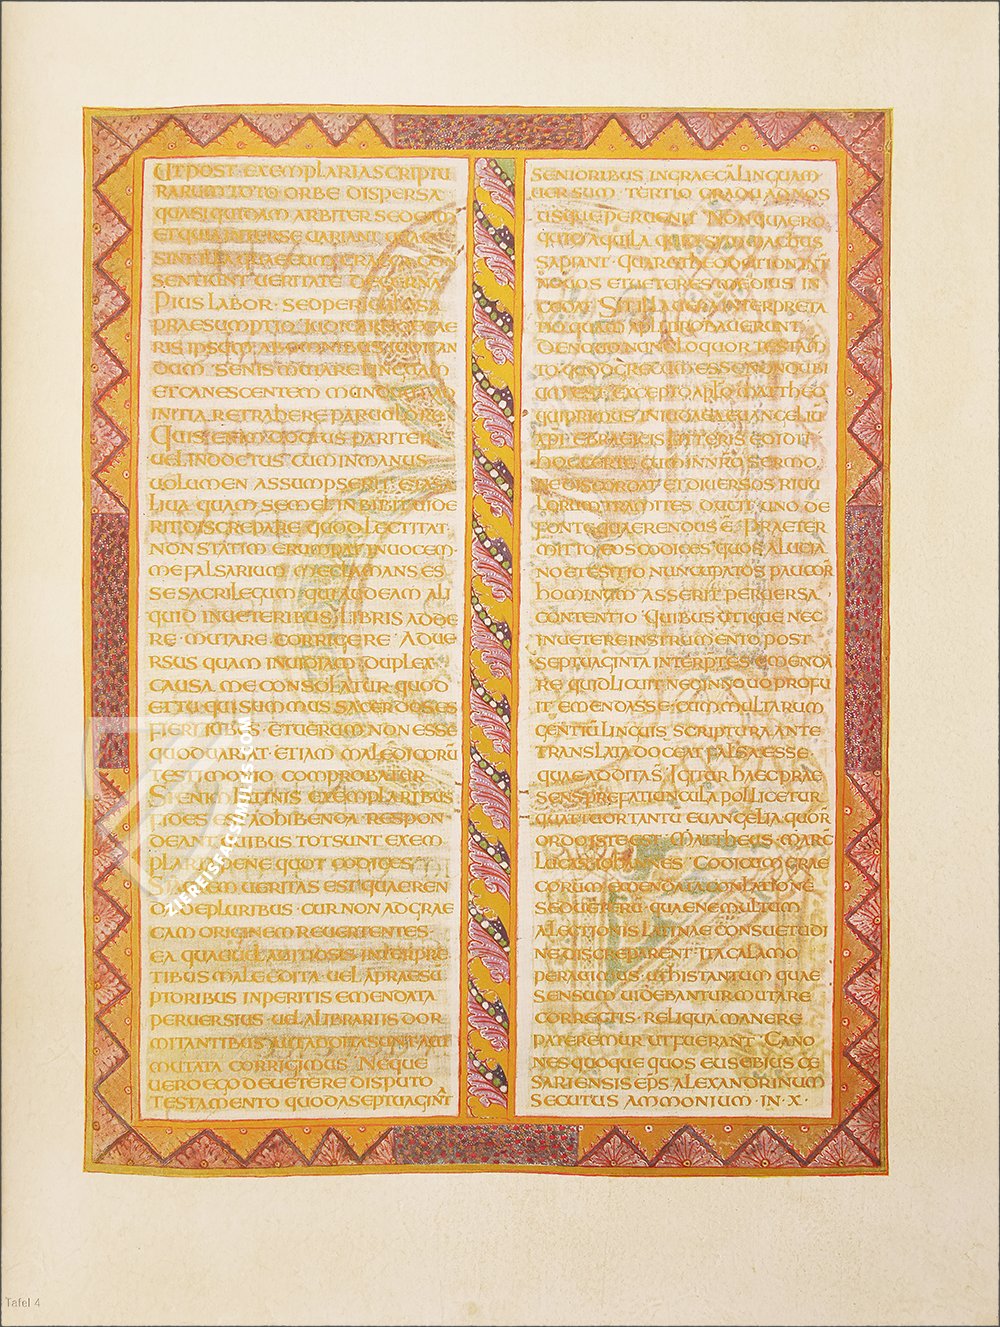 UT POST EXEMPLARIA SCRIPTU
RARUM TOTO ORBE DISPERSA
QUASI QUIDAM ARBITER SEDEAM
ET QUIA INTER SE VARIANT QUAE
SINT ILLA QUAE CUM GRAECA CON
SENTIANT UERITATE DECERNA
PIUS LABOR · SED PERICULOSA
PRAESUMPTIO · IUDICARE DE CAE
RIS IPSUM AB OMNIBUS IUDICAN
DUM · SENIS MUTARE LINGUAM
ET CANESCENTEM MUNDUM AD
INITIA RETRAHERE PARUULORU
QUIS ENIM DOCTUS PARITER
UEL INDOCTUS CUM IN MANUS
UOLUMEN ASSUMPSERIT ET A SA
LIUA QUAM SEMEL INBIBIT UIDE
RIT DISCREPARE QUOD LECTITAT·
NON STATIM ERUMPAT IN UOCEM·
ME FALSARIUM ME CLAMANS ES
SE SACRILEGUM QUI AUDEAM ALI
QUID IN UETERIBUS LIBRIS ADDE
RE · MUTARE CORRIGERE · ADUE
RSUS QUAM INUIDIAM DUPLEX
CAUSA ME CONSOLATUR QUOD
ET TU QUI SUMMUS SACERDOS ES
FIERI IUBES · ET UERUM NON ESSE
QUOD UARIAT · ETIAM MALEDICORŪ
TESTIMONIO COMPROBATUR·
SI ENIM LATINIS EXEMPLARIBUS
FIDES EST ADHIBENDA · RESPON
DEANT QUIBUS TOT SUNT EXEM
PLARIA PENE QUOT CODICES
SI AUTEM UERITAS EST QUAEREN
DA DE PLURIBUS · CUR NON AD GRAE
CAM ORIGINEM REUERTENTES·
EA QUAE UEL A UITIOSIS INTERPRE
TIBUS MALE EDITA · UEL A PRAESU
PTORIBUS INPERITIS EMENDATA
PERUERSIUS · UEL A LIBRARIIS DOR
MITANTIBUS AUT ADDITA SUNT AUT
MUTATA CORRIGIMUS · NEQUE
UERO EGO DE UETERE DISPUTO
TESTAMENTO QUOD A SEPTUAGINT
SENIORIBUS IN GRAECĀ LINGUAM·
UERSUM · TERTIO GRADU AD NOS
USQUE PERUENIT · NON QUAERO
QUID AQUILA QUID SYMMACHUS
SAPIANT · QUARE THEODITION INT
NOUOS ET UETERES MEDIUS IN
CEDAT SIT ILLA UERA INTERPRETA
TIO QUAM APLI PROBAUERUNT
DE NOUO NUNC LOQUOR TESTAM
TO QUOD GRECUM ESSE NON DUBI
UM EST EXCEPTO APTO MATTHEO
QUI PRIMUS IN IUDAEA EUANGELIŪ
XPI EBRAICIS LITTERIS EDIDIT
HOC CERTE CUM IN NRO SERMO
NE DISCORDAT ET DIUERSOS RIUU
LORUM TRAMITES DUCIT UNO DE
FONTE QUAERENDUS Ē PRAETER
MITTO EOS CODICES QUOS A LUCIA
NO ET ESITIO NUNCUPATOS PAUCOR
HOMINUM ASSERIT PERUERSA
CONTENTIO · QUIBUS UTIQUE NEC
IN UETERE INSTRUMENTO POST
SEPTUAGINTA INTERPTES EMENDA
RE QUID LICUIT NEC IN NOUO PROFU
IT EMENDASSE · CUM MULTARUM
GENTIŪ LINGUIS SCRIPTURA ANTE
TRANSLATA DOCEAT FALSA ESSE
QUAE ADDITA S̄ IGITUR HAEC PRAE
SENS PREFATIUNCULA POLLICETUR
QUATTUOR TANTU EUANGELIA QUOR
ORDO ISTE EST · MATTHEUS · MARC̄
LUCAS IOHANNES · CODICUM GRAE
CORUM EMENDATA CONLATIONE
SED UETERU QUAE NE MULTUM
A LECTIONIS LATINAE CONSUETUDI
NE DISCREPARENT · ITA CALAMO
PERAUIMUS UT HIS TANTUM QUAE
SENSUM UIDEBANTUR MUTARE
CORRECTIS · RELIQUA MANERE
PATEREMUR UT FUERANT · CANO
NES QUOQUE QUOS EUSEBIUS CE
SARIENSIS EPS ALEXANDRINUM
SECUTUS AMMONIUM · IN · X ·
ZIEREIS FACSIMILES.COM
Tafel 4